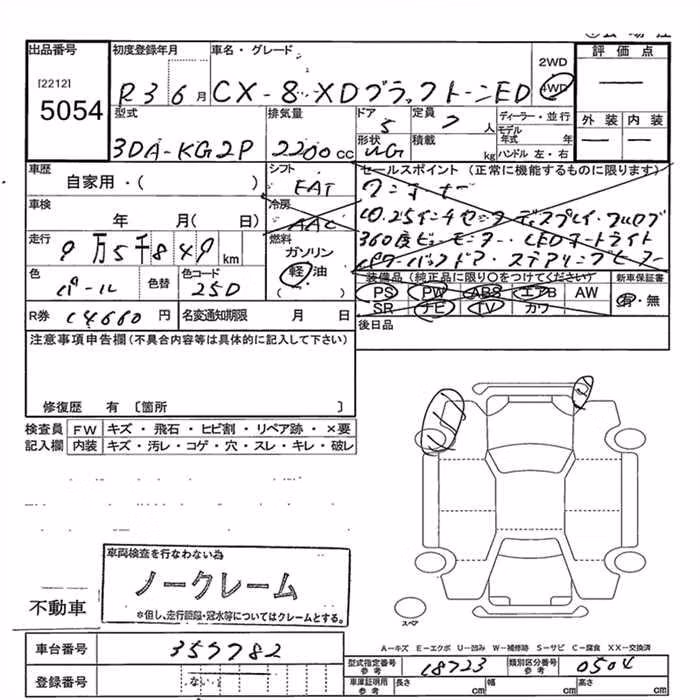 出品番号 初度登録年月 車名・グレード 評価点
[2212] 2WD
5054 R3 6月 CX-8 XDブラックトーンED 4WD
型式 排気量 ドア 定員 ディーラー・並行 外装 内装
3DA-KG2P 2200cc 5 7人 モデル年式 年
形状 積載 kg ハンドル 左・右
車歴 シフト セールスポイント (正常に機能するものに限ります)
自家用・( ) FAT ワンオーナー
車検 冷房 10.25インチセンターディスプレイ・フルセグ
年 月( 日) AAC
走行 燃料 360度ビューモニター・LEDオートライト
9万5千849km ガソリン パワーバックドア・ステアリングヒーター
色 色替 色コード 軽油 装備品 (純正品に限り○をつけてください) 新車保証書
パール 25D ( ) PS PW ABS エアB AW 有・無
R券 14660円 名変通知期限 月 日 SR ナビ TV カワ
後日品
注意事項申告欄(不具合内容等は具体的に記入して下さい)
修復歴 有 〔箇所 〕
検査員 FW キズ・飛石・ヒビ割・リペア跡・×要
記入欄 内装 キズ・汚レ・コゲ・穴・スレ・キレ・破レ
車両検査を行なわない為
ノークレーム
不動車 *但し、走行距離・冠水等についてはクレームとする。
スペア
A-キズ E-エクボ U-凹み W-補修跡 S-サビ C-腐食 XX-交換済
車台番号 357782 型式指定番号 参考 18723 類別区分番号 参考 0504
登録番号 ない 車庫証明用 参考 長さ cm 幅 cm 高さ cm